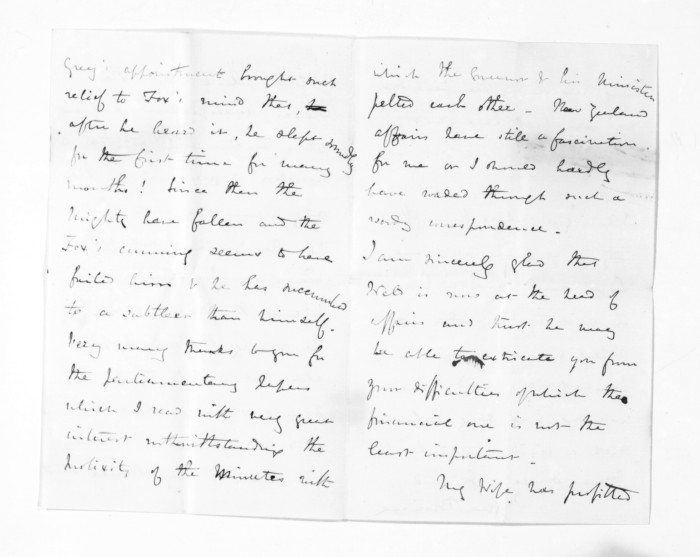 Grey's appointment brought such
relief to Fox's mind that,
after he heard it, he slept soundly
for the first time for many
months! Since then the
Mighty have fallen and the
Fox's cunning seems to have
failed him & he has succumbed
to a subtleer than himself.
Very many thanks to you for
the parliamentary papers
which I read with very great
interest notwithstanding the
prolixity of the Minutes with
which the Governor & his Ministers
pelted each other - New Zealand
affairs have still a fascination
for me or I should hardly
have waded through such a
wordy correspondence.
I am sincerely glad that
Weld is now at the head of
affairs and trust he may
be able to extricate you from
your difficulties of which the
financial one is not the
least important.
My Wife has profitted